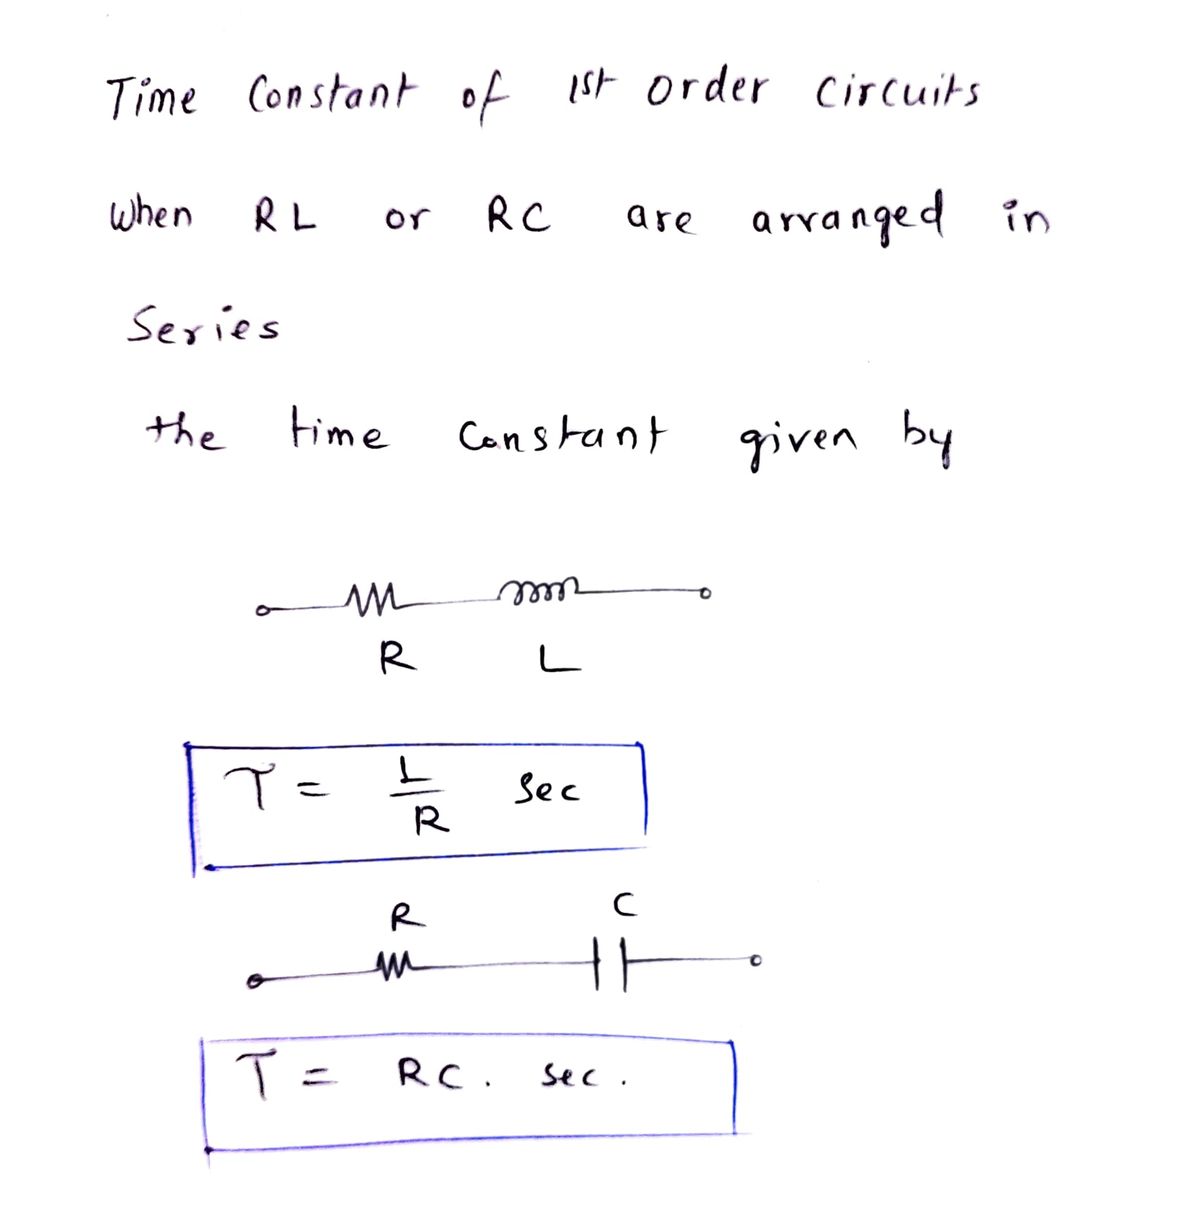 Time Constant of 1st order circuits
When RL or RC are arranged in
Series
the time Constant given by
R L
T = L/R Sec
R C
T = RC. sec.